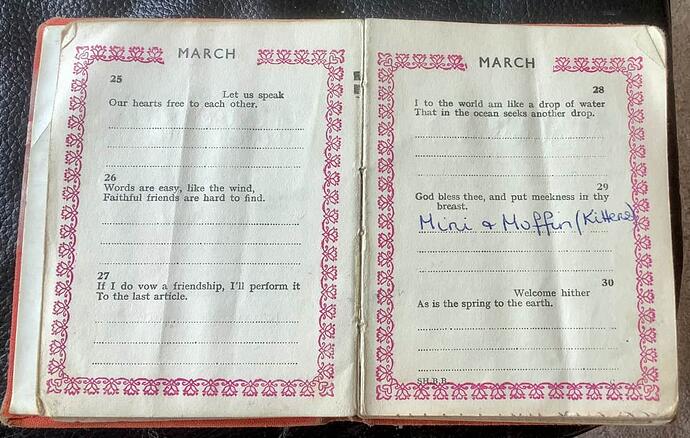 MARCH
25
Let us speak
Our hearts free to each other.
26
Words are easy, like the wind,
Faithful friends are hard to find.
27
If I do vow a friendship, I'll perform it
To the last article.
MARCH
28
I to the world am like a drop of water
That in the ocean seeks another drop.
29
God bless thee, and put meekness in thy
breast.
Mini & Moffin (Kittens)
30
Welcome hither
As is the spring to the earth.
SH.B.B.